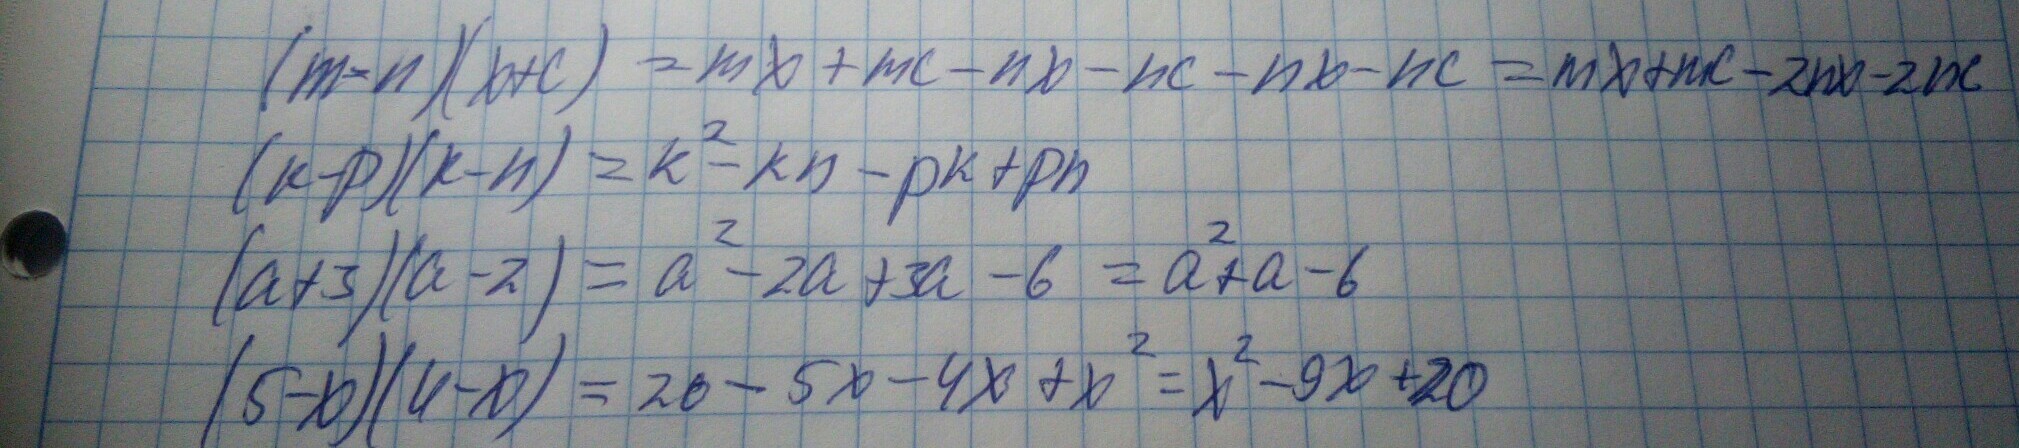 (m-n)(x+c) = mx + mc - nx - nc - nx - nc = mx+mc-2nx-2nc
(k-p)(k-n) = k² - kn - pk + pn
(a+3)(a-2) = a² - 2a + 3a - 6 = a² + a - 6
(5-x)(4-x) = 20 - 5x - 4x + x² = x² - 9x + 20